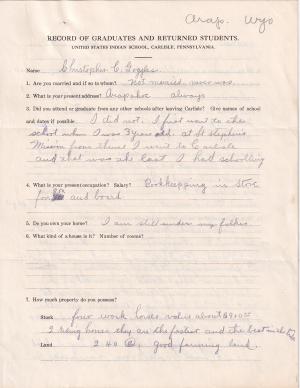 Arap. Wyo
RECORD OF GRADUATES AND RETURNED STUDENTS.
UNITED STATES INDIAN SCHOOL, CARLISLE, PENNSYLVANIA.
Name Christopher C. Goggles
1. Are you married and if so to whom? Not married, never was.
2. What is your present address? Arapahoe always
3. Did you attend or graduate from any other schools after leaving Carlisle? Give names of school
and dates if possible. I did not. I first went to the
school when I was 3 years old. at St Stephens
Mission from there I went to Carlisle
and that was the last I had schooling
4. What is your present occupation? Salary? Bookkeeping in store
for and board
5. Do you own your home? I am still under my father
6. What kind of a house is it? Number of rooms?
7. How much property do you possess?
Stock four work horses value about $900.00
2 being horses they are the fastest and the best in
Land 240 good farming land.